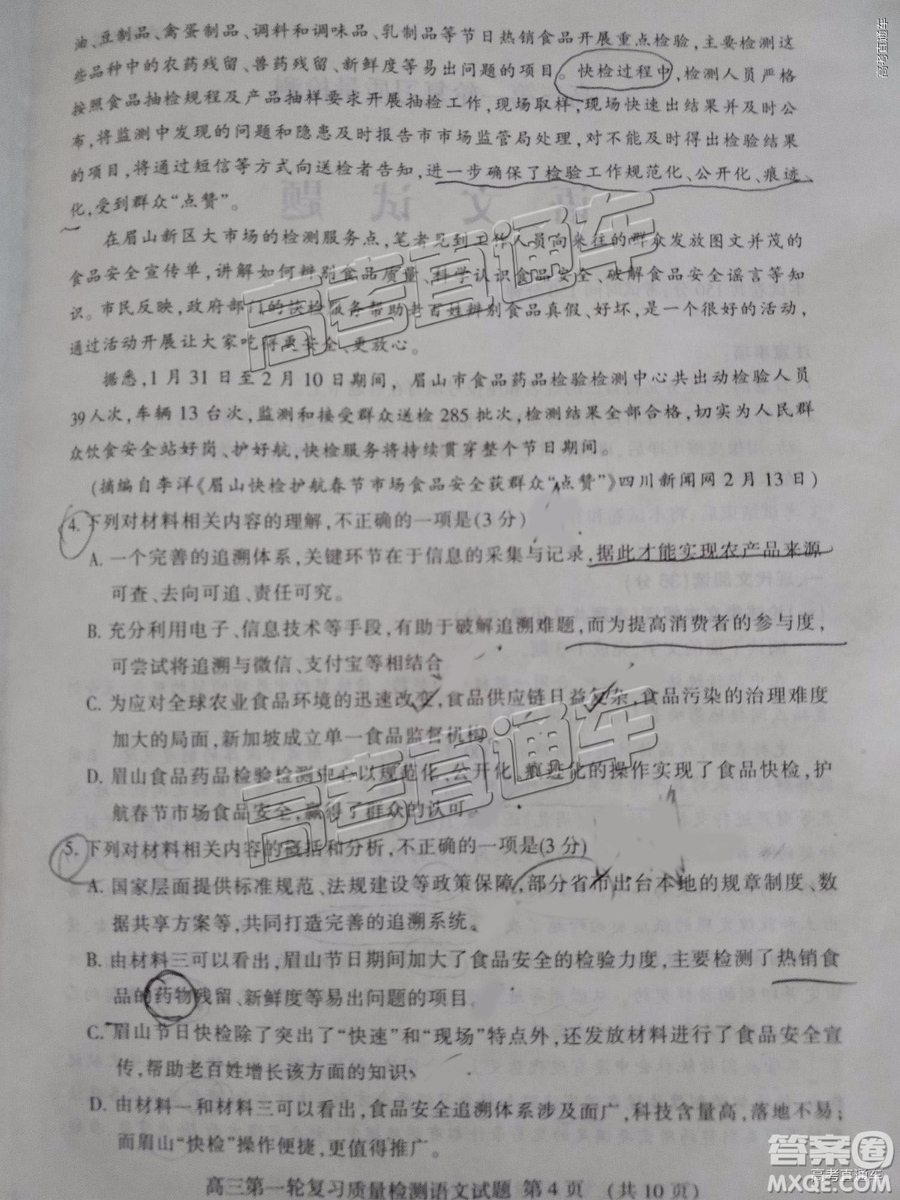 油、豆制品、禽蛋制品、调料和调味品、乳制品等节日热销食品开展重点检验,主要检测这
些品种中的农药残留、兽药残留、新鲜度等易出问题的项目。快检过程中,检测人员严格
按照食品抽检规程及产品抽样要求开展抽检工作,现场取样,现场快速出结果并及时公
布,将监测中发现的问题和隐患及时报告市市场监管局处理,对不能及时得出检验结果
的项目,将通过短信等方式向送检者告知,进一步确保了检验工作规范化、公开化、痕迹
化,受到群众“点赞”。
在眉山新区大市场的检测服务点,笔者见到工作人员向来往的群众发放图文并茂的
食品安全宣传单,讲解如何辨别食品质量、科学认识食品安全、破解食品安全谣言等知
识。市民反映,政府部门的快检服务帮助老百姓辨别食品真假、好坏,是一个很好的活动,
通过活动开展让大家吃得更安全、更放心。
据悉,1月31日至2月10日期间,眉山市食品药品检验检测中心共出动检验人员
39人次,车辆13台次,监测和接受群众送检285批次,检测结果全部合格,切实为人民群
众饮食安全站好岗、护好航,快检服务将持续贯穿整个节日期间。
(摘编自李洋《眉山快检护航春节市场食品安全获群众“点赞”》四川新闻网2月13日)
4.下列对材料相关内容的理解,不正确的一项是(3分)
A.一个完善的追溯体系,关键环节在于信息的采集与记录,据此才能实现农产品来源
可查、去向可追、责任可究。
B.充分利用电子、信息技术等手段,有助于破解追溯难题,而为提高消费者的参与度,
可尝试将追溯与微信、支付宝等相结合
C.为应对全球农业食品环境的迅速改变,食品供应链日益复杂,食品污染的治理难度
加大的局面,新加坡成立单一食品监督机构
D.眉山食品药品检验检测中心以规范化,公开化,痕迹化的操作实现了食品快检,护
航春节市场食品安全,赢得了群众的认可。
5.下列对材料相关内容的概括和分析,不正确的一项是(3分)
A.国家层面提供标准规范、法规建设等政策保障,部分省市出台本地的规章制度、数
据共享方案等,共同打造完善的追溯系统。
B.由材料三可以看出,眉山节日期间加大了食品安全的检验力度,主要检测了热销食
品的药物残留、新鲜度等易出问题的项目。
C.眉山节日快检除了突出了“快速”和“现场”特点外,还发放材料进行了食品安全宣
传,帮助老百姓增长该方面的知识、
D.由材料一和材料三可以看出,食品安全追溯体系涉及面广,科技含量高,落地不易;
而眉山“快检”操作便捷,更值得推广。
高三第一轮复习质量检测语文试题 第4页 (共10页)
高考直通车
高考直通车
高考直通车
答案圈
高考直通车
MXQE.COM